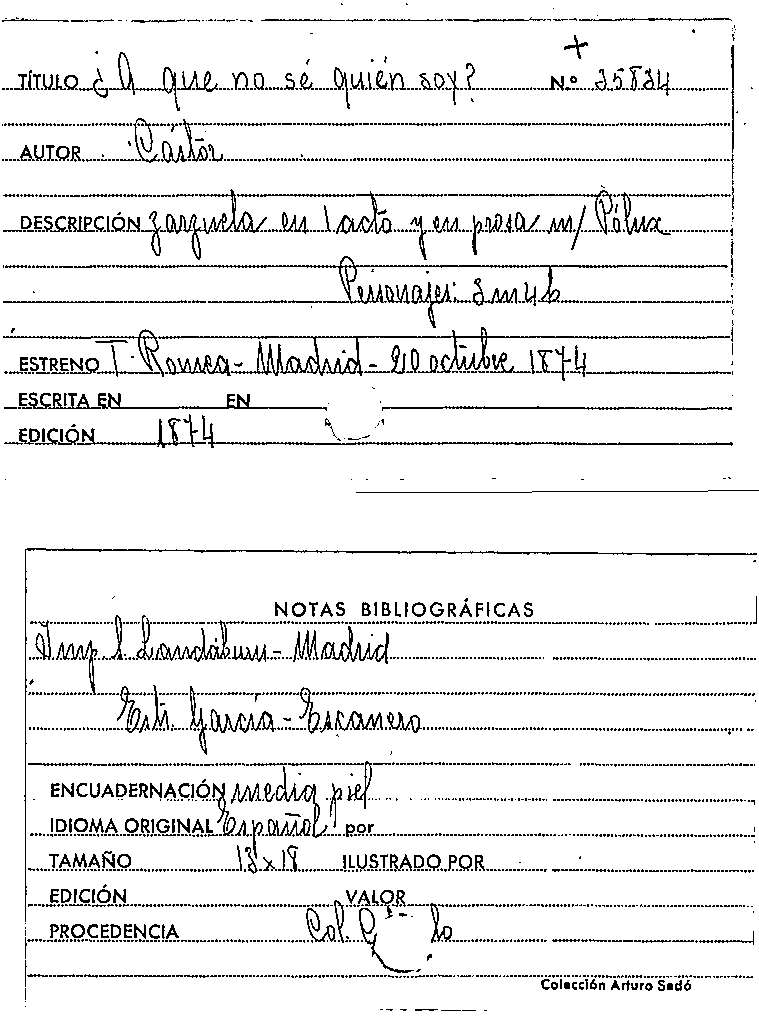 +
TÍTULO ¿A que no sé quién soy? Nº 35834
AUTOR Cástor
DESCRIPCIÓN zarzuela en 1 acto y en prosa m/ Pólux
Personajes: 3 m 4 h
ESTRENO T. Romea - Madrid - 20 octubre 1874
ESCRITA EN EN
EDICIÓN 1874
NOTAS BIBLIOGRÁFICAS
Imp. S. Landáburu - Madrid
Edit. García - Escanero
ENCUADERNACIÓN media piel
IDIOMA ORIGINAL Español por
TAMAÑO 13 x 18 ILUSTRADO POR
EDICIÓN VALOR
PROCEDENCIA Col.
Colección Arturo Sedó